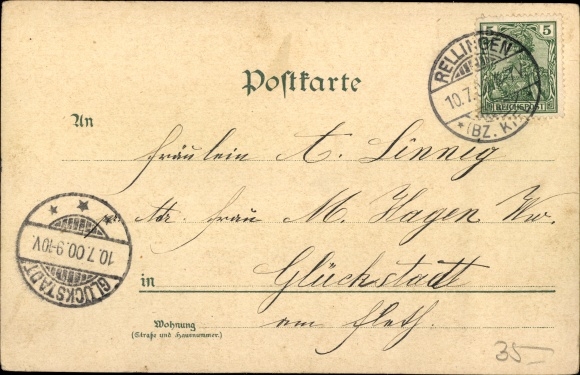 5 5
REICHSPOST
RELLINGEN
10.7.
* (BZ.
Postkarte
An
Fräulein A. Linnig
Adr. Frau M. Hagen Ww.
in Glückstadt
am Fleth.
Wohnung
(Straße und Hausnummer.)
* * *
10.7.00.9-10V.
GLÜCKSTADT
35—